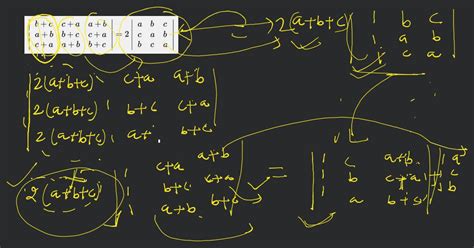 | b+c c+a a+b | = 2 | a b c |
| a+b b+c c+a | | c a b |
| c+a a+b b+c | | b c a |
2(a+b+c) | 1 b c |
| 1 a b |
| 1 c a |
| 2(a+b+c) c+a a+b |
| 2(a+b+c) b+c c+a |
| 2(a+b+c) a+ b+c |
2(a+b+c) | 1 c+a a+b |
| 1 b+c c+a |
| 1 a+b b+c |
= | 1 c a+b |
| 1 b c+a |
| 1 a b+c |